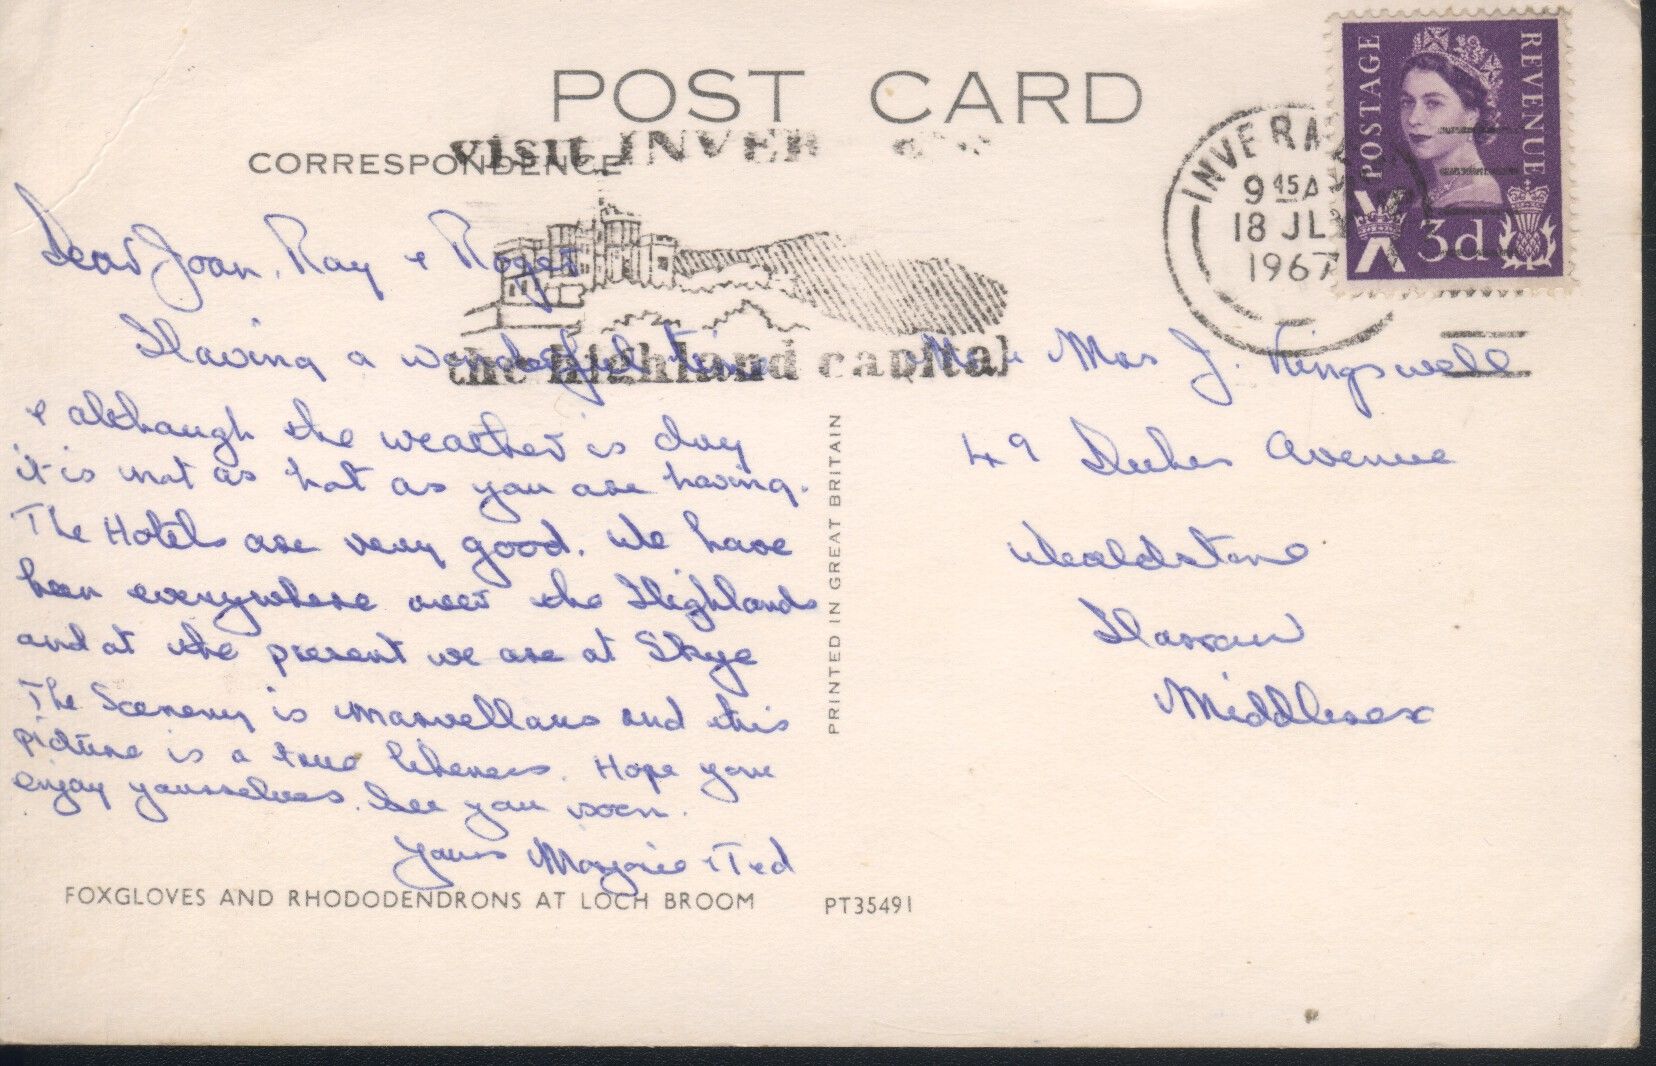 POST CARD
CORRESPONDENCE
VISIT INVER
the highland capital
INVERN
9 45 A
18 JLY
1967
POSTAGE
REVENUE
3d
Dear Joan, Ray & Roger
Having a wonderful time
& although the weather is dry
it is not as hot as you are having.
The Hotels are very good. We have
been everywhere over the Highlands
and at the present we are at Skye
The Scenery is marvellous and this
picture is a true likeness. Hope you
enjoy yourselves. See you soon.
Yours Marjorie & Ted
Mr & Mrs J. Kingswell
49 Dukes Avenue
Wealdstone
Harrow
Middlesex
PRINTED IN GREAT BRITAIN
FOXGLOVES AND RHODODENDRONS AT LOCH BROOM
PT35491